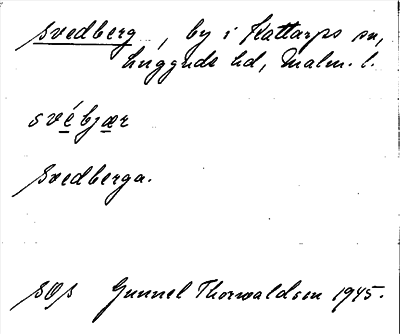 Svedberg, by i Kattarps sn,
Luggude hd, Malm. l.
svébjær
Svedberga.
SOS Gunnel Thorwaldson 1945.